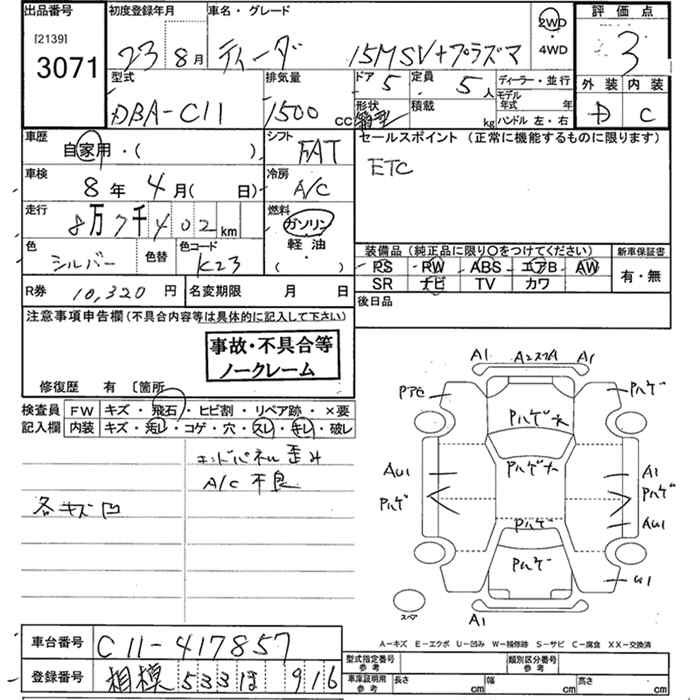 出品番号 初度登録年月 車名・グレード 評価点
[2139] 3071
23 8月 ティーダ 15MSV+プラズマ 2WD ・ 4WD 3
型式 排気量 ドア 5 定員 5人 ディーラー・並行 外装 内装
DBA-C11 1500cc 形状 箱型 積載 kg モデル年式 年 ハンドル 左・右 D C
車歴 シフト セールスポイント (正常に機能するものに限ります)
自家用・( ) FAT ETC
車検 冷房
8年 4月( 日) A/C
走行 燃料
8万7千402km ガソリン
軽・油
( )
色 シルバー 色替 色コード K23
装備品 (純正品に限り○をつけてください) 新車保証書
PS PW ABS エアB AW 有・無
SR ナビ TV カワ
R券 10,320円 名変期限 月 日 後日品
注意事項申告欄 (不具合内容等は具体的に記入して下さい)
事故・不具合等
ノークレーム
修復歴 有 〔箇所
検査員 FW キズ・飛石・ヒビ割・リペア跡・×要
記入欄 内装 キズ・汚レ・コゲ・穴・スレ・キレ・破レ
エンドパネル歪み
A/C 不良
各キズ凹
A1 A2スリA A1
Pハゲ
Pハゲ大
AU1 Pハゲ大 A1
Pハゲ Pハゲ
Pハゲ AU1
Pハゲ
U1
スペア A1
A-キズ E-エクボ U-凹み W-補修跡 S-サビ C-腐食 XX-交換済
車台番号 C11-417857
型式指定番号 参考 類別区分番号 参考
登録番号 相模 533 ほ 916
車庫証明用 参考 長さ cm 幅 cm 高さ cm